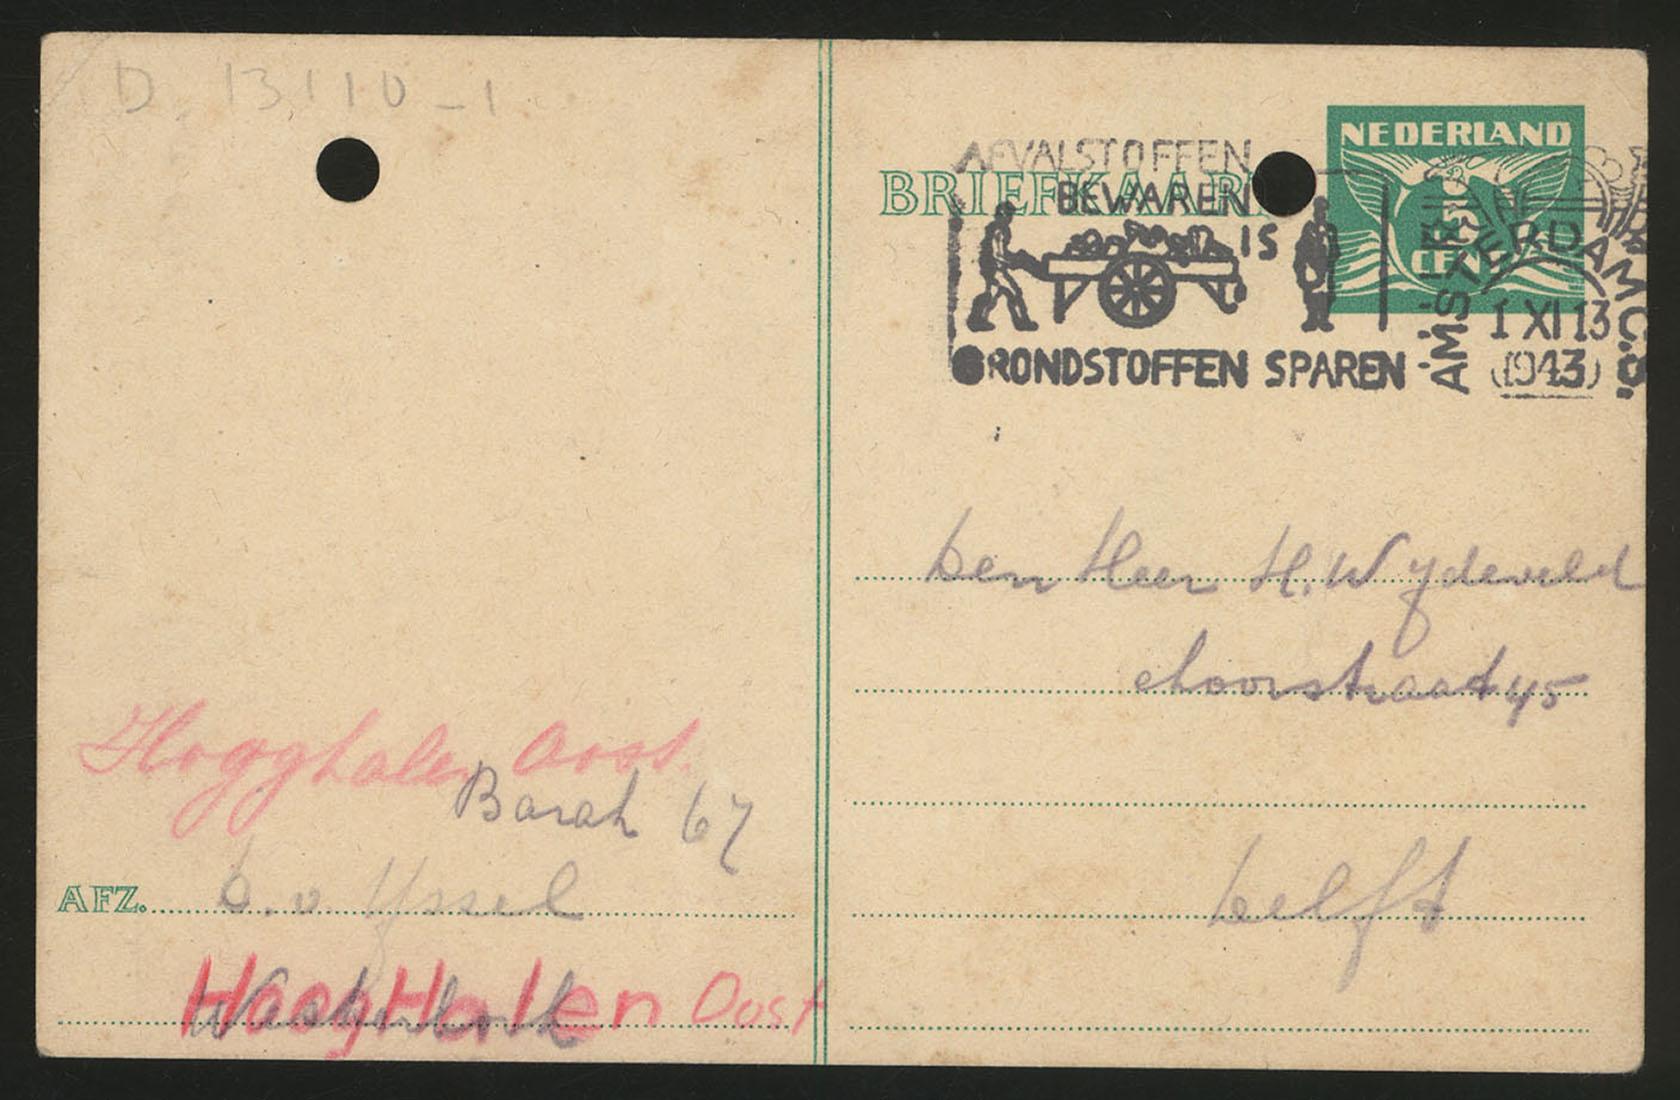 D. 13110-1
Hooghalen Oost.
Barak 67
AFZ. D. v. IJssel
Westerbork
HoogHalen Oost
NEDERLAND
5
CENT
BRIEFKAART
AFVALSTOFFEN
BEWAREN
IS
GRONDSTOFFEN SPAREN
AMSTERDAM C.S.
1 XI 13
1943
Den Heer H. Wijdeveld
Voorstraat 45
Delft